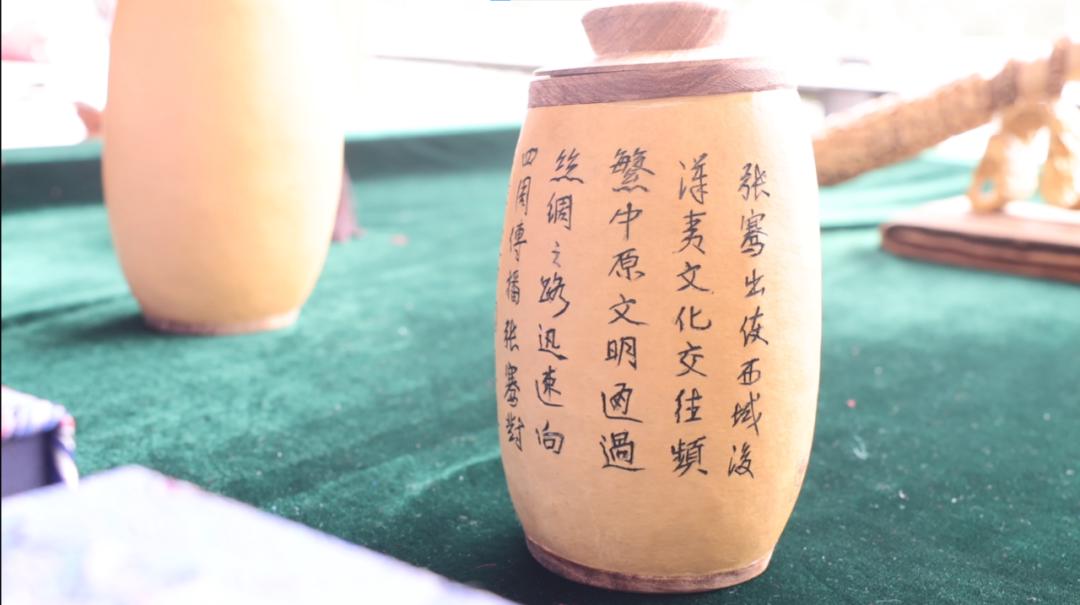 张骞出使西域後
漢夷文化交往頻
繁中原文明通過
絲綢之路迅速向
四周傳播张骞對